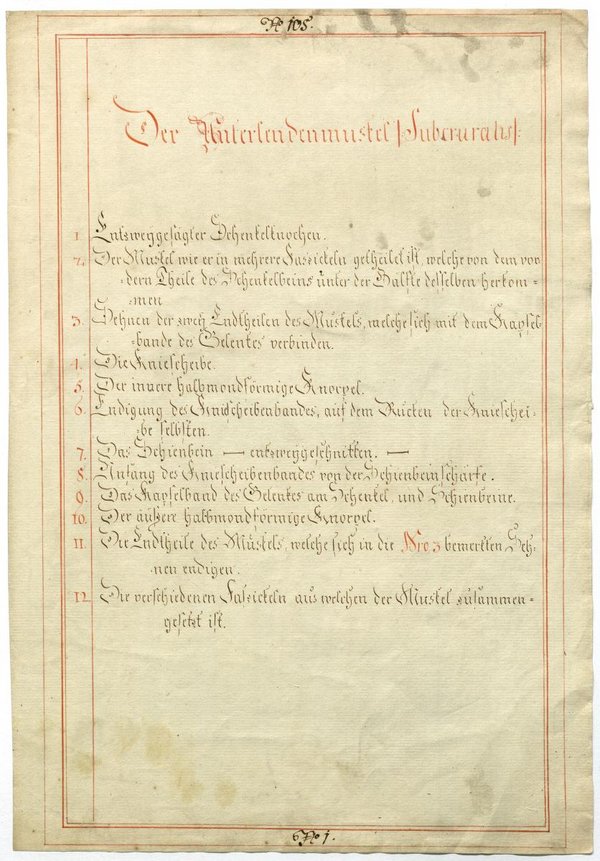 No 105.
Der Unterlendenmuskel /:Subcruralis:/
1. Entzweygesägter Schenkelknochen.
2. Der Muskel wie er in mehrere Fassickeln getheilet ist, welche von dem vor
dern Theile des Schenkelbeins unter der Hälfte desselben herkom=
=men
3. Sehnen der zwey Endtheilen des Muskels, welche sich mit dem Kapsel=
=bande des Gelenkes verbinden.
4. Die Kniescheibe.
5. Der innere halbmondförmige Knorpel.
6. Endigung des Kniescheibenbandes, auf dem Rücken der Knieschei=
be selbsten.
7. Das Schienbein — entzweygeschnitten. —
8. Anfang des Kniescheibenbandes von der Schienbeinschärfe.
9. Das Kapselband des Gelenkes am Schenkel, und Schienbeine.
10. Der äußere halbmondförmige Knorpel.
11. Die Endtheile des Muskels, welche sich in die Nro 3 bemerkten Seh=
nen endigen.
12. Die verschiedenen Fassickeln aus welchen der Muskel zusammen=
gesetzt ist.
No 1.